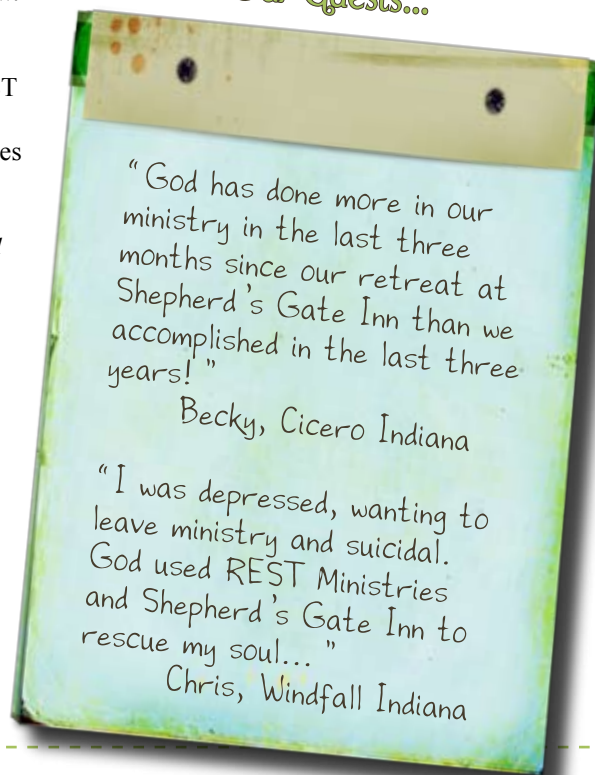 Our Guests...
T
es
“ God has done more in our
ministry in the last three
months since our retreat at
Shepherd’s Gate Inn than we
accomplished in the last three
years! ”
Becky, Cicero Indiana
“ I was depressed, wanting to
leave ministry and suicidal.
God used REST Ministries
and Shepherd’s Gate Inn to
rescue my soul... ”
Chris, Windfall Indiana